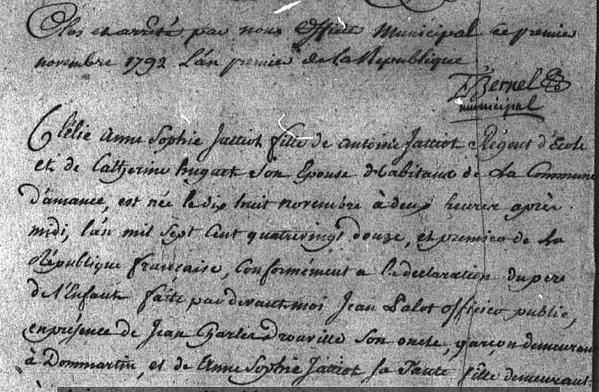 Clos et arrêté par nous Officier Municipal ce premier
novembre 1792 L'an premier de la Republique
Bernel
municipal
Clélie Anne Sophie Jattiot fille de antoine Jattiot Régent d'Ecole
et de Catherine huguet Son Epouse habitans de La Commune
d'amance, est née le dix huit novembre à deux heures après
midi, l'an mil Sept Cent quatrevingt douze, et premier de La
République francaise, Conformément a la declaration du pere
de l'Enfant faite par devant moi Jean Lalot officier public,
en présence de Jean Charles Drouville Son oncle, garçon demeurant
à Dommartin, et de Anne Sophie Jattiot Sa Tante fille demeurant